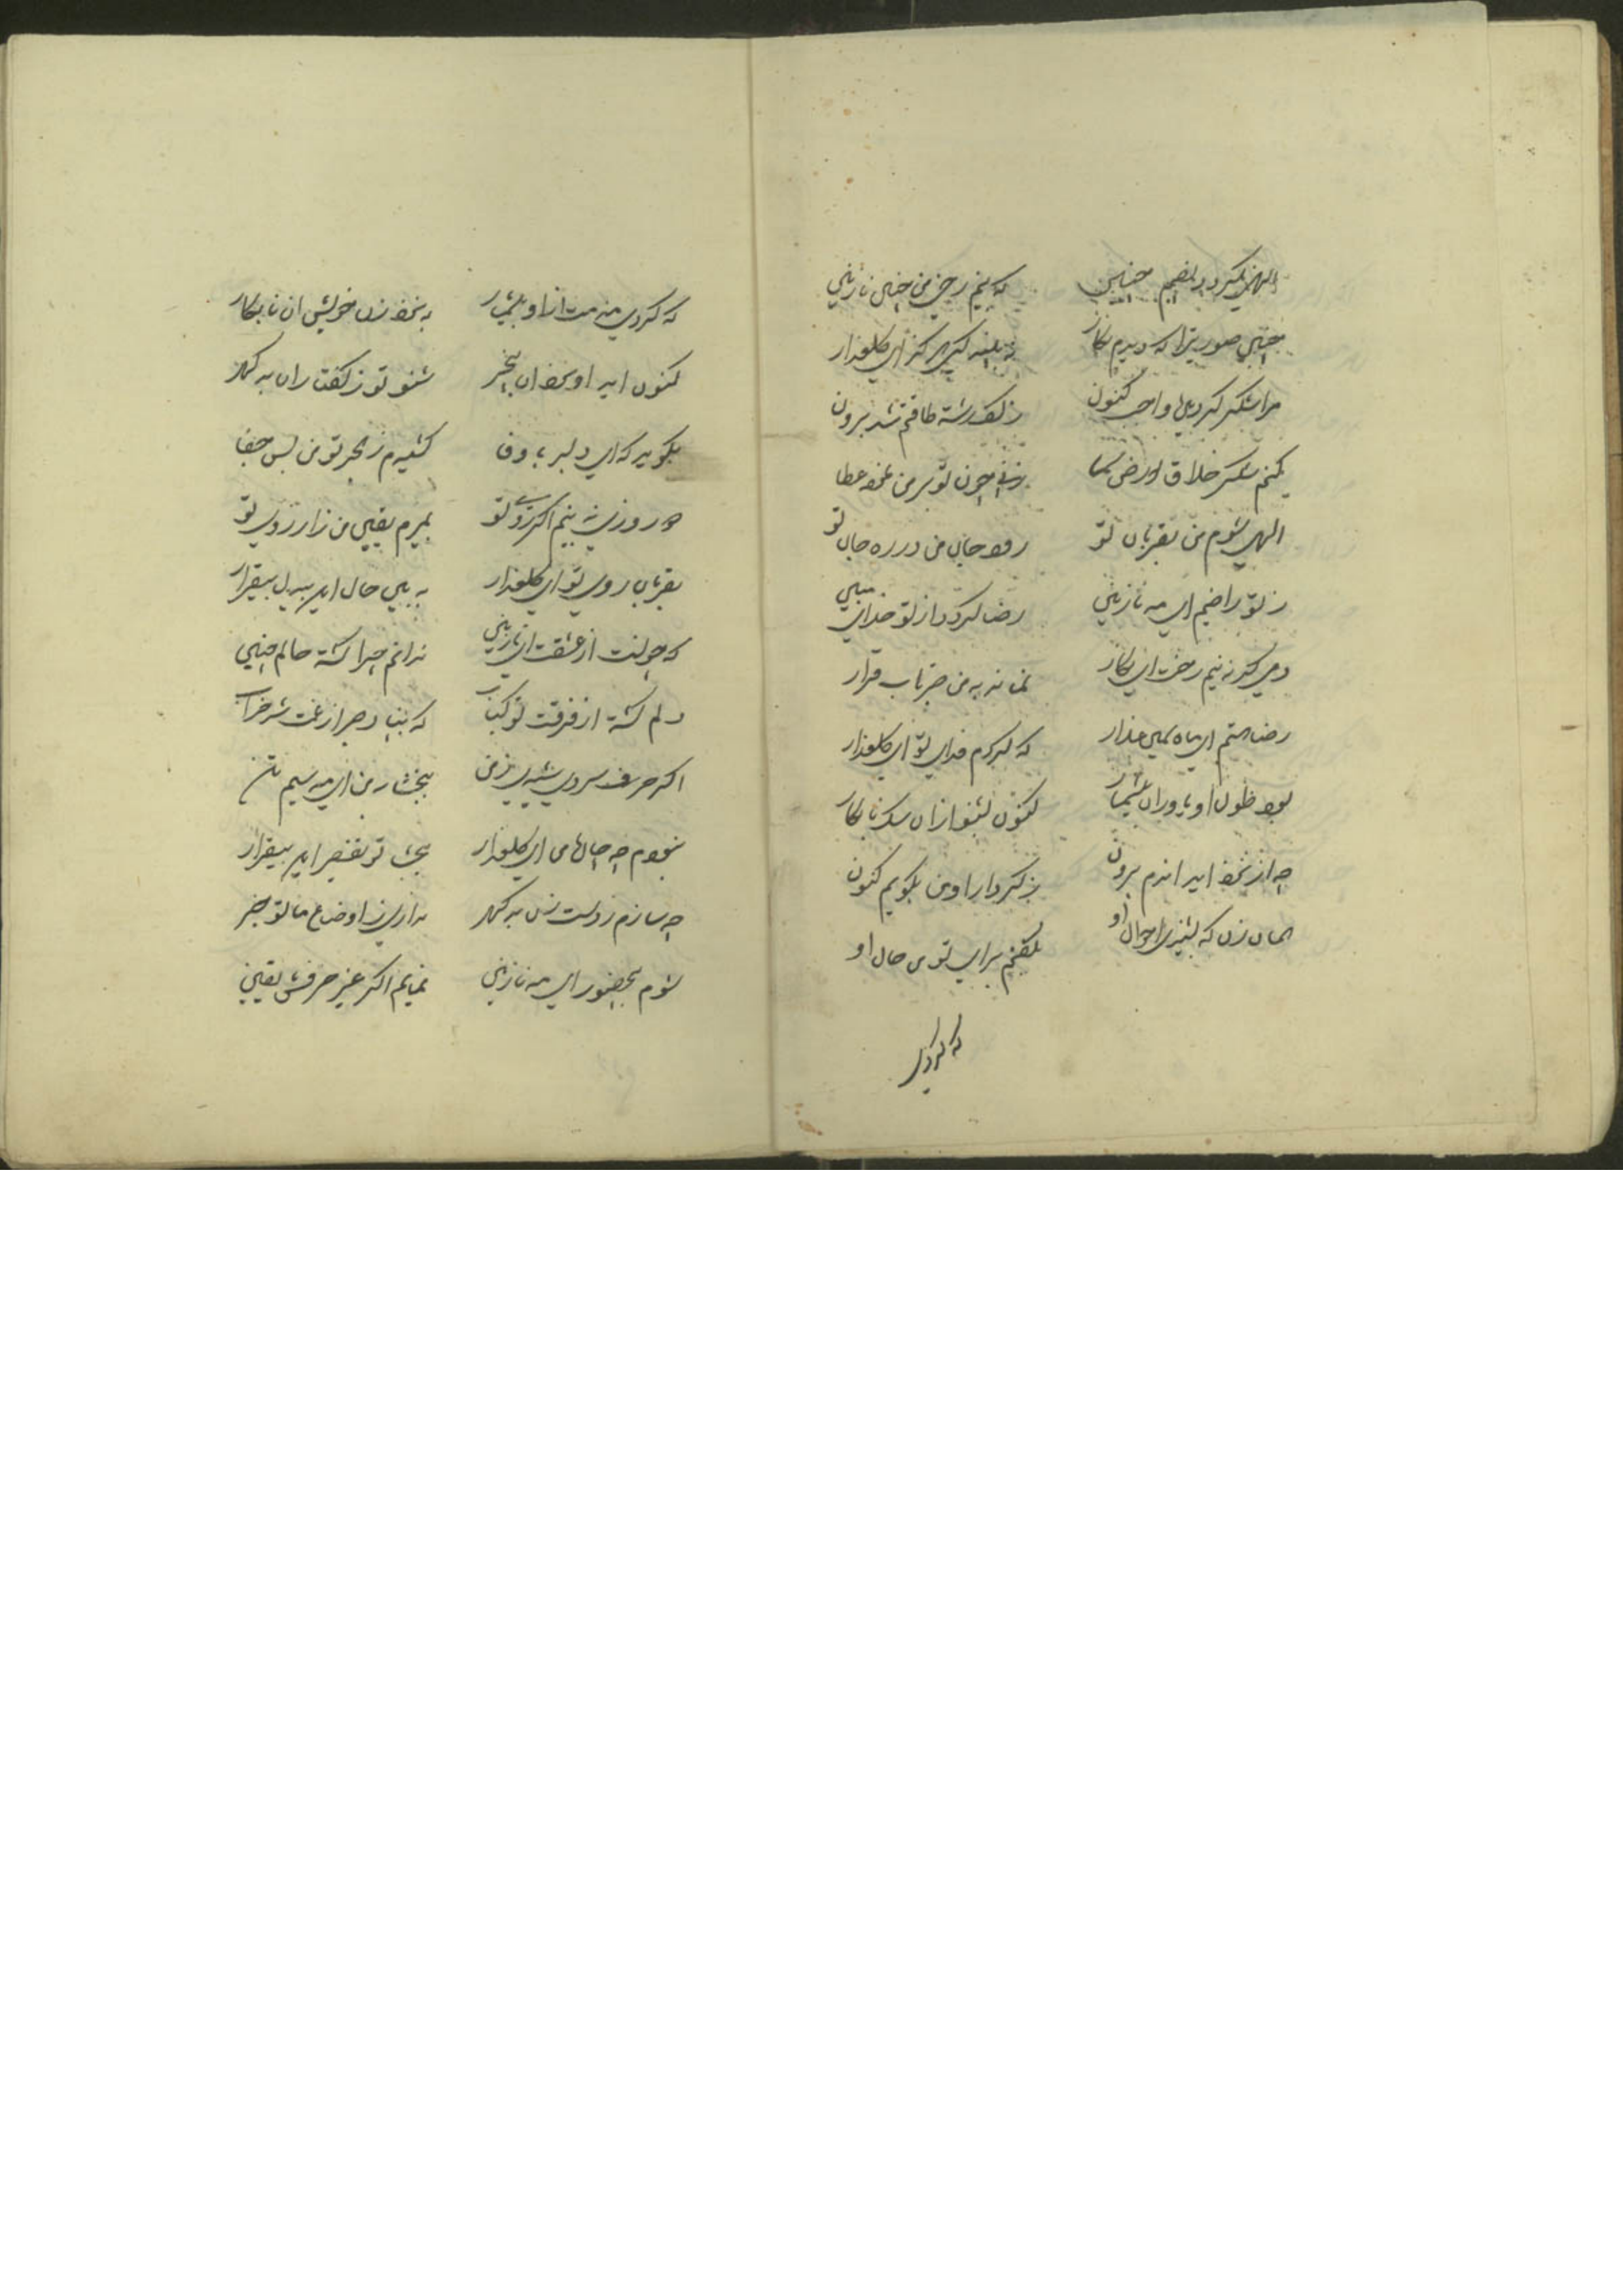 الهی نمیکردد نصیبم چنین که بینم رخی من چنین نازنین
چنین صورتی را که دیدم نکار نه بیند کسی هرکز ای کلعذار
مرا شکر کردنها واجب کنون ز کف رشته طاقتم شد برون
کنم شکر خلاق ارض سما رخی چون تو بر من نموده عطا
الهی شوم من بقربان تو رود جان من در ره جان تو
ز تو راضیم ای مه نازنین رضا کردد از تو خدای مبین
دمی کر نه بینم رخت ای نکار نماند به من صبر تاب قرار
رضا هستم ای ماه سیمین عذار که کردم فدای تو ای کلعذار
بود ظول او یاوران بیشمار کنون بشنو از ان سک نابکار
چه از نخود اید اندم برون ز کردار او من بکویم کنون
همان زن که بشنیدی احوال او بکفتم برای تو من حال او
که کردی
که کردی مذمت از او بیشمار به نزد زن خویش ان نابکار
کنون اید او نزد ان بیخبر شنو تو ز کفتار ان بد کهر
بکوید که ای دلبر با وفا کشیدم ز هجر تو من بس جفا
دو روزی نه بینم اکر روی تو بمیرم یقین من ز ارزوی تو
بقربان روی تو ای کلعذار به بین حال این بیدل بیقرار
که چونست از عشقت ای نازنین ندانم چرا کشته حالم چنین
دلم کشته از فرقت تو کباب که بنیاد صبر از غمت شد خراب
اکر حرف سردی شنیدی ز من ببخشا به من ای مه سیم تن
نبودم چه حالها من ای کلعذار ببخش تو تقصیر این بیقرار
چه سازم ز دست زن بد کهر نداری ز اوضاع ما تو خبر
شوم بحضور ای مه نازنین نمایم اکر غیر حرفش یقین